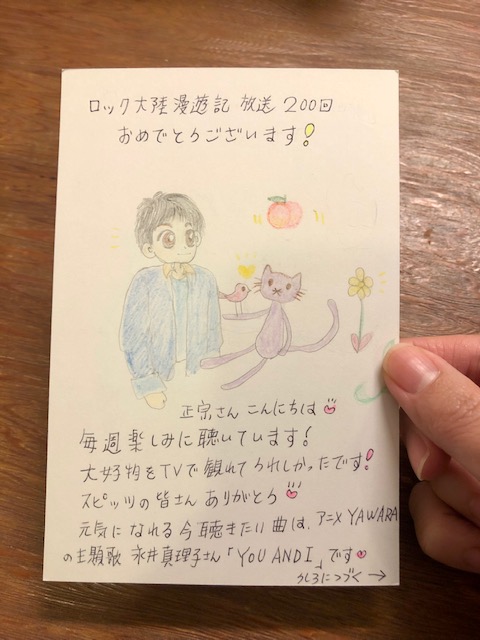 ロック大陸漫遊記 放送 200回
おめでとうございます!
正宗さん こんにちは
毎週楽しみに聴いています!
大好物をTVで観れてうれしかったです!
スピッツの皆さん ありがとう
元気になれる今聴きたい曲は、アニメ YAWARA
の主題歌 永井真理子さん「YOU AND I」です
うしろにつづく→